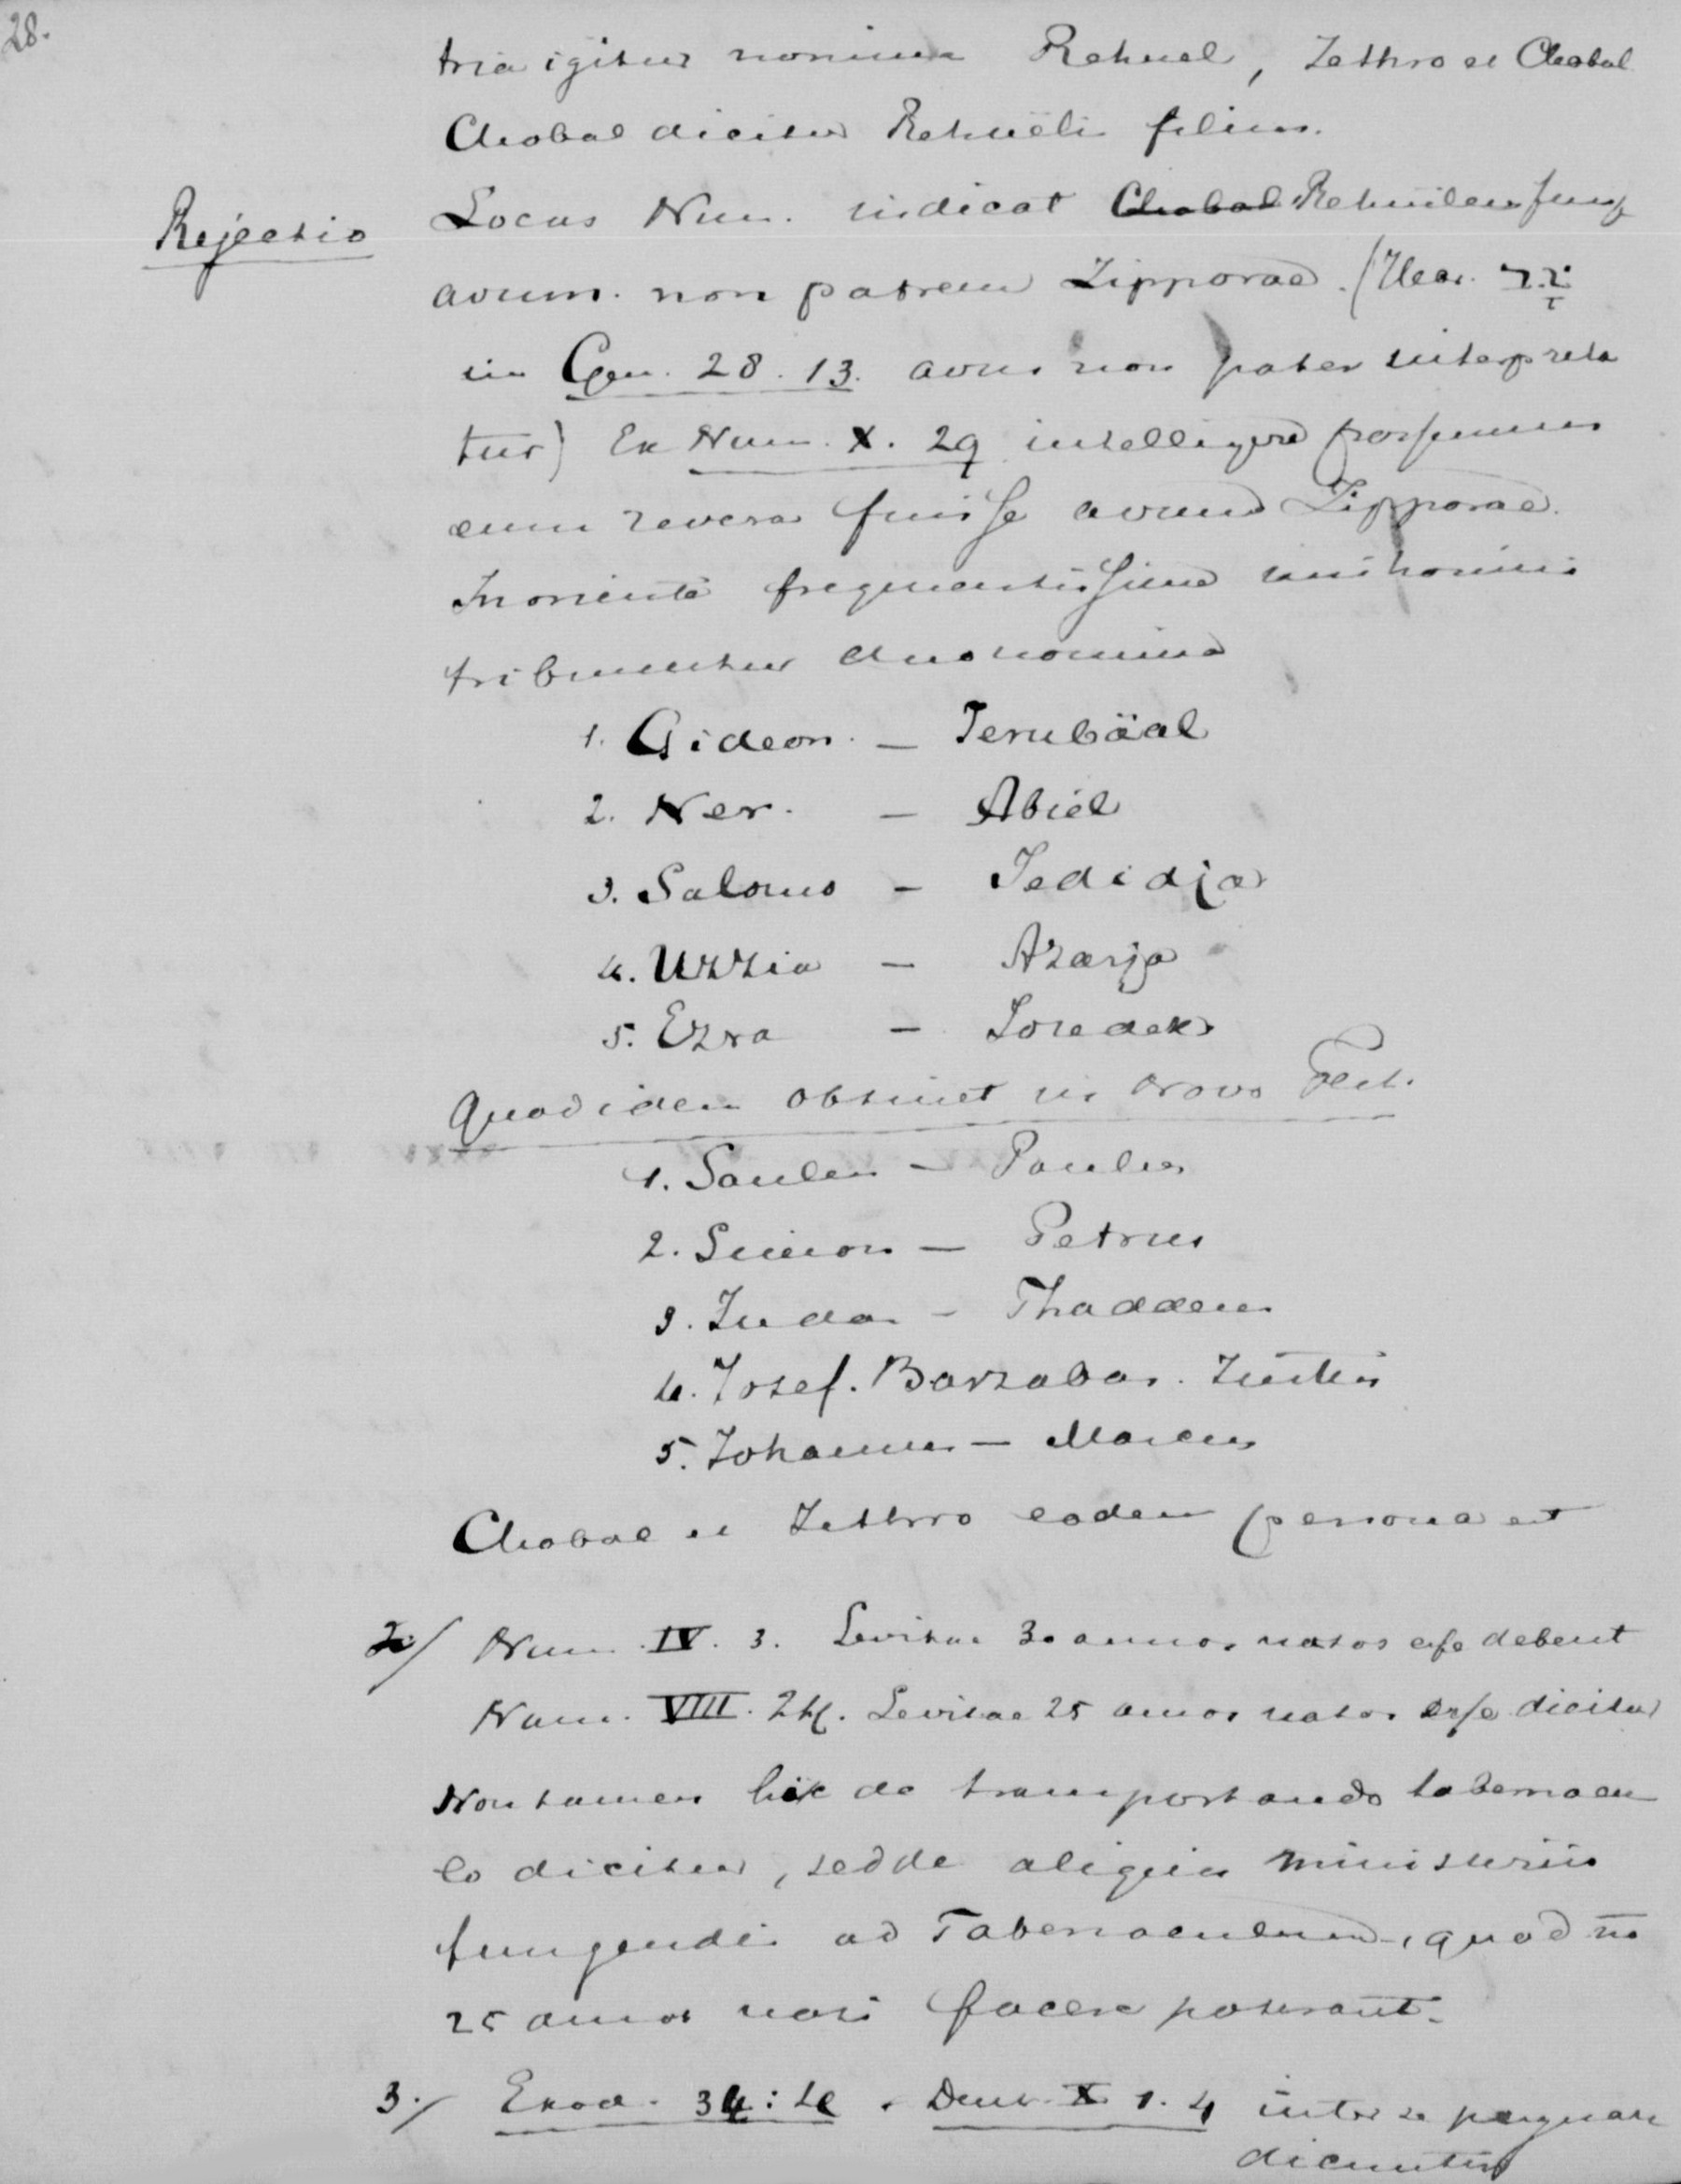 28.
tria igitur nomina Rehuel, Jethro et Chobal
Chobal dicitur Rehuelis filius.
Rejectio
Locus Num. indicat Chobal Rehuilem fuisse
avum non patrem Zipporae. (Hebr.
in Gen. 28. 13. avus non pater interpreta
tur) Ex Num. X. 29 intelligere possumus
eum revera fuisse avum Zipporae.
In oriente frequentissime uni homini
tribuuntur duo nomina
1. Gideon. — Jerubäal
2. Ner. — Abiel
3. Salomo — Jedidja
4. Uzzia — Azarja
5. Ezra — Jozedek
Quod idem obtinet in Novo Test.
1. Saulus — Paulus
2. Simon — Petrus
3. Judas — Thaddaeus
4. Josef. Barzabas. Justus
5. Johannes — Marcus
Chobal et Jethro eadem persona est
2/ Num. IV. 3. Levitae 30 annos natos esse debent
Num. VIII. 24. Levitae 25 annos natos esse dicitur
Non tamen hic de transportando tabernacu
lo dicitur, sed de aliquis ministeriis
fungendis ad Tabernaculum, quod
25 annos nati facere poterant.
3./ Exod. 34: 28. Deut. X 1. 4 inter se pugnare
dicuntur